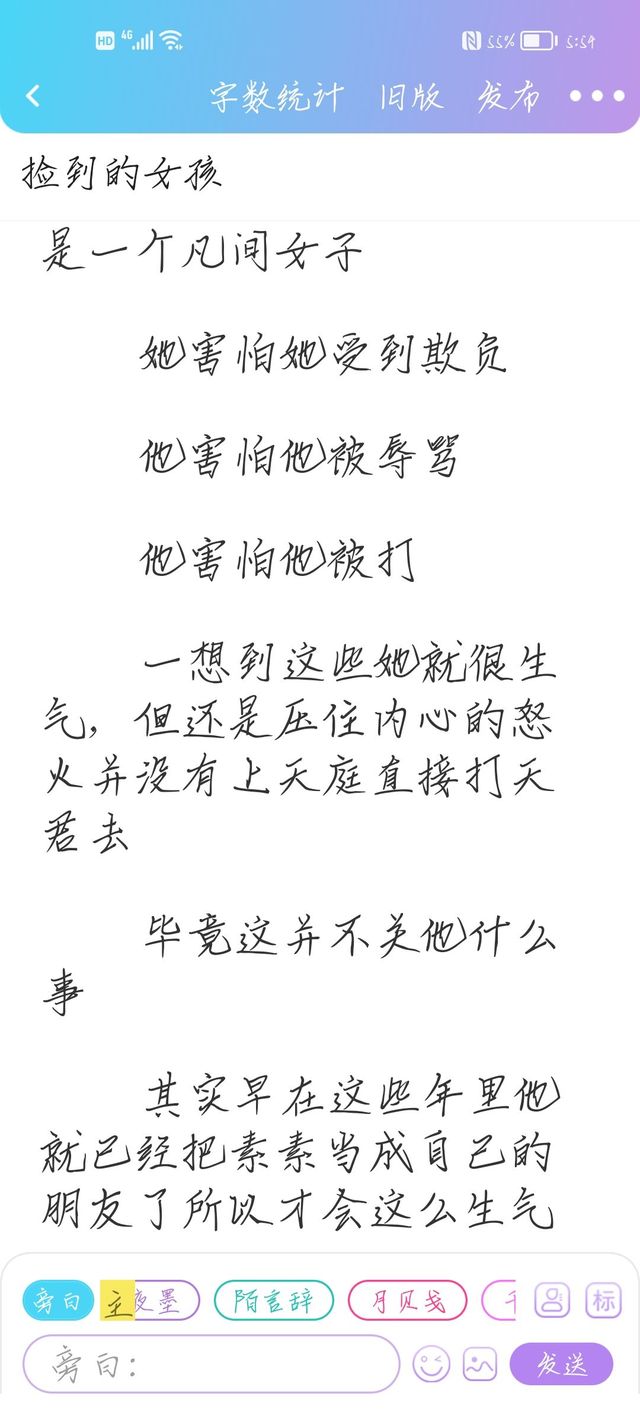 HD 4G 55% 5:54
字数统计 旧版 发布
捡到的女孩
是一个凡间女子
她害怕她受到欺负
他害怕他被辱骂
他害怕他被打
一想到这些她就很生
气，但还是压住内心的怒
火并没有上天庭直接打天
君去
毕竟这并不关他什么
事
其实早在这些年里他
就已经把素素当成自己的
朋友了所以才会这么生气
旁白 主 夜墨 陌言辞 月贝戋
标
旁白：
发送